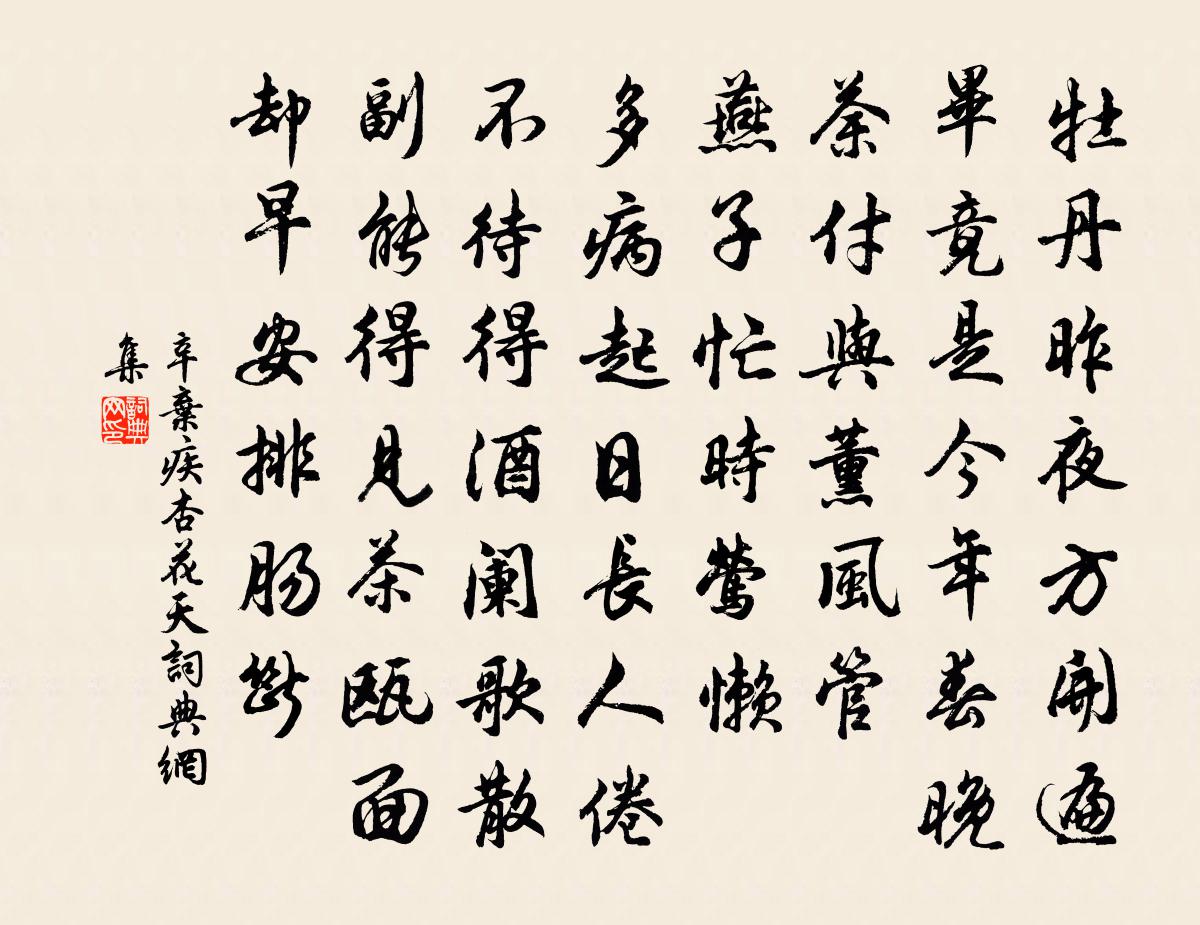 牡丹昨夜方開遍
畢竟是今年春晚
荼付與薰風管
燕子忙時鶯懶
多病起日長人倦
不待得酒瀾歌散
副能得見茶甌面
却早安排肠斷
辛棄疾杏花天詞典網
集
詞典
网印